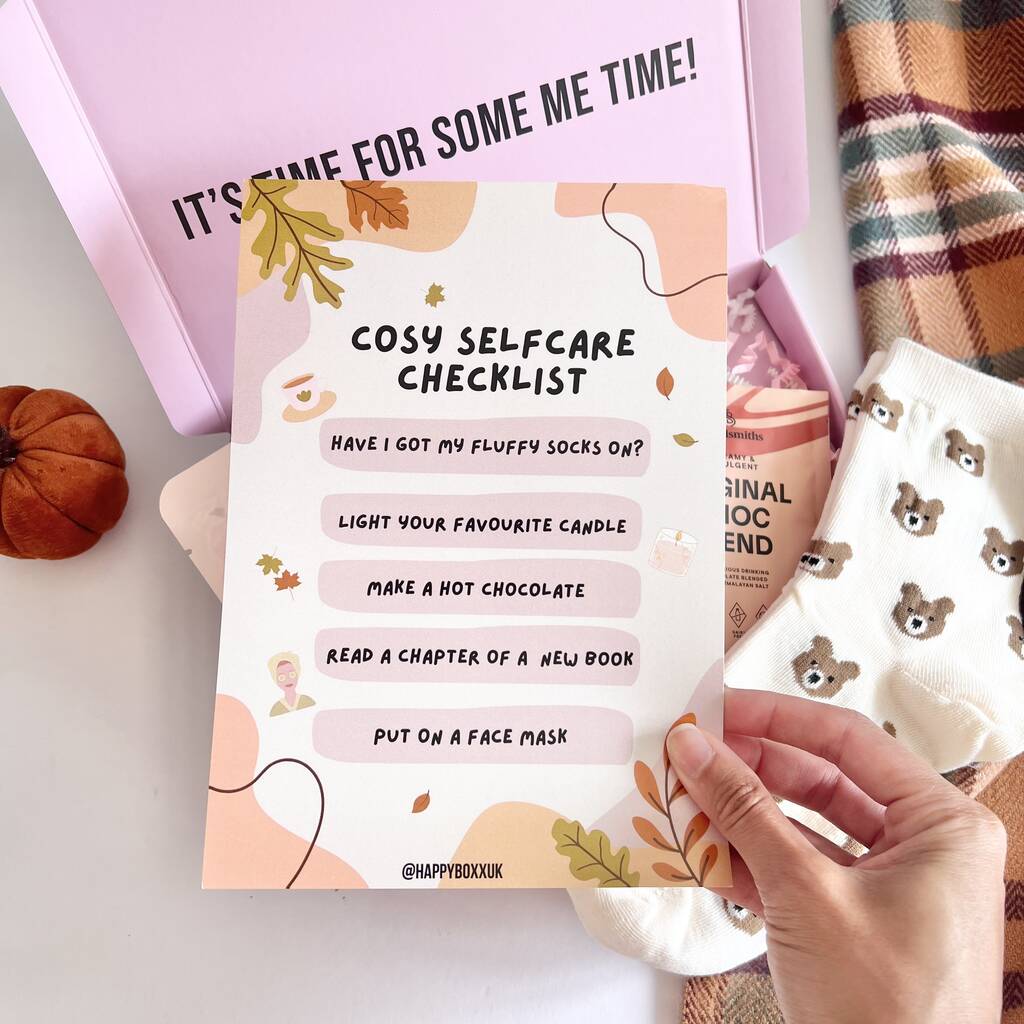 IT'S TIME FOR SOME ME TIME!
COSY SELFCARE
CHECKLIST
HAVE I GOT MY FLUFFY SOCKS ON?
LIGHT YOUR FAVOURITE CANDLE
MAKE A HOT CHOCOLATE
READ A CHAPTER OF A NEW BOOK
PUT ON A FACE MASK
@HAPPYBOXXUK